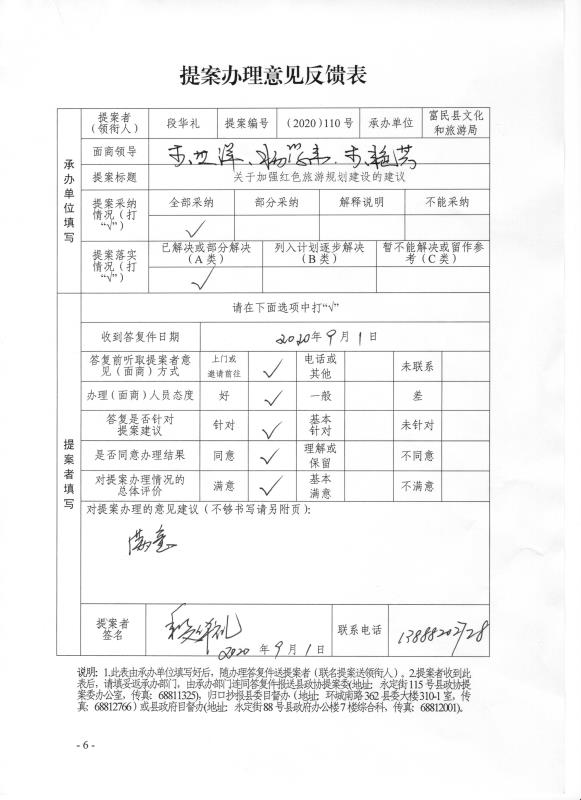 提案办理意见反馈表
承办单位填写
提案者（领衔人） 段华礼 提案编号 (2020)110号 承办单位 富民县文化和旅游局
面商领导
提案标题 关于加强红色旅游规划建设的建议
提案采纳情况（打“√”） 全部采纳 部分采纳 解释说明 不能采纳
√
提案落实情况（打“√”） 已解决或部分解决（A类） 列入计划逐步解决（B类） 暂不能解决或留作参考（C类）
√
提案者填写
请在下面选项中打“√”
收到答复件日期 2020年9月1日
答复前听取提案者意见（面商）方式 上门或邀请前往 √ 电话或其他 未联系
办理（面商）人员态度 好 √ 一般 差
答复是否针对提案建议 针对 √ 基本针对 未针对
是否同意办理结果 同意 √ 理解或保留 不同意
对提案办理情况的总体评价 满意 √ 基本满意 不满意
对提案办理的意见建议（不够书写请另附页）：
满意
提案者签名 段华礼 联系电话 13888202728
2020年9月1日
说明：1.此表由承办单位填写好后，随办理答复件送提案者（联名提案送领衔人）。2.提案者收到此
表后，请填妥返承办部门，由承办部门连同答复件报送县政协提案委(地址：永定街115号县政协提
案委办公室，传真：68811325)，归口抄报县委目督办（地址：环城南路362县委大楼310-1室，传
真：68812766）或县政府目督办(地址：永定街88号县政府办公楼7楼综合科，传真：68812001)。
- 6 -